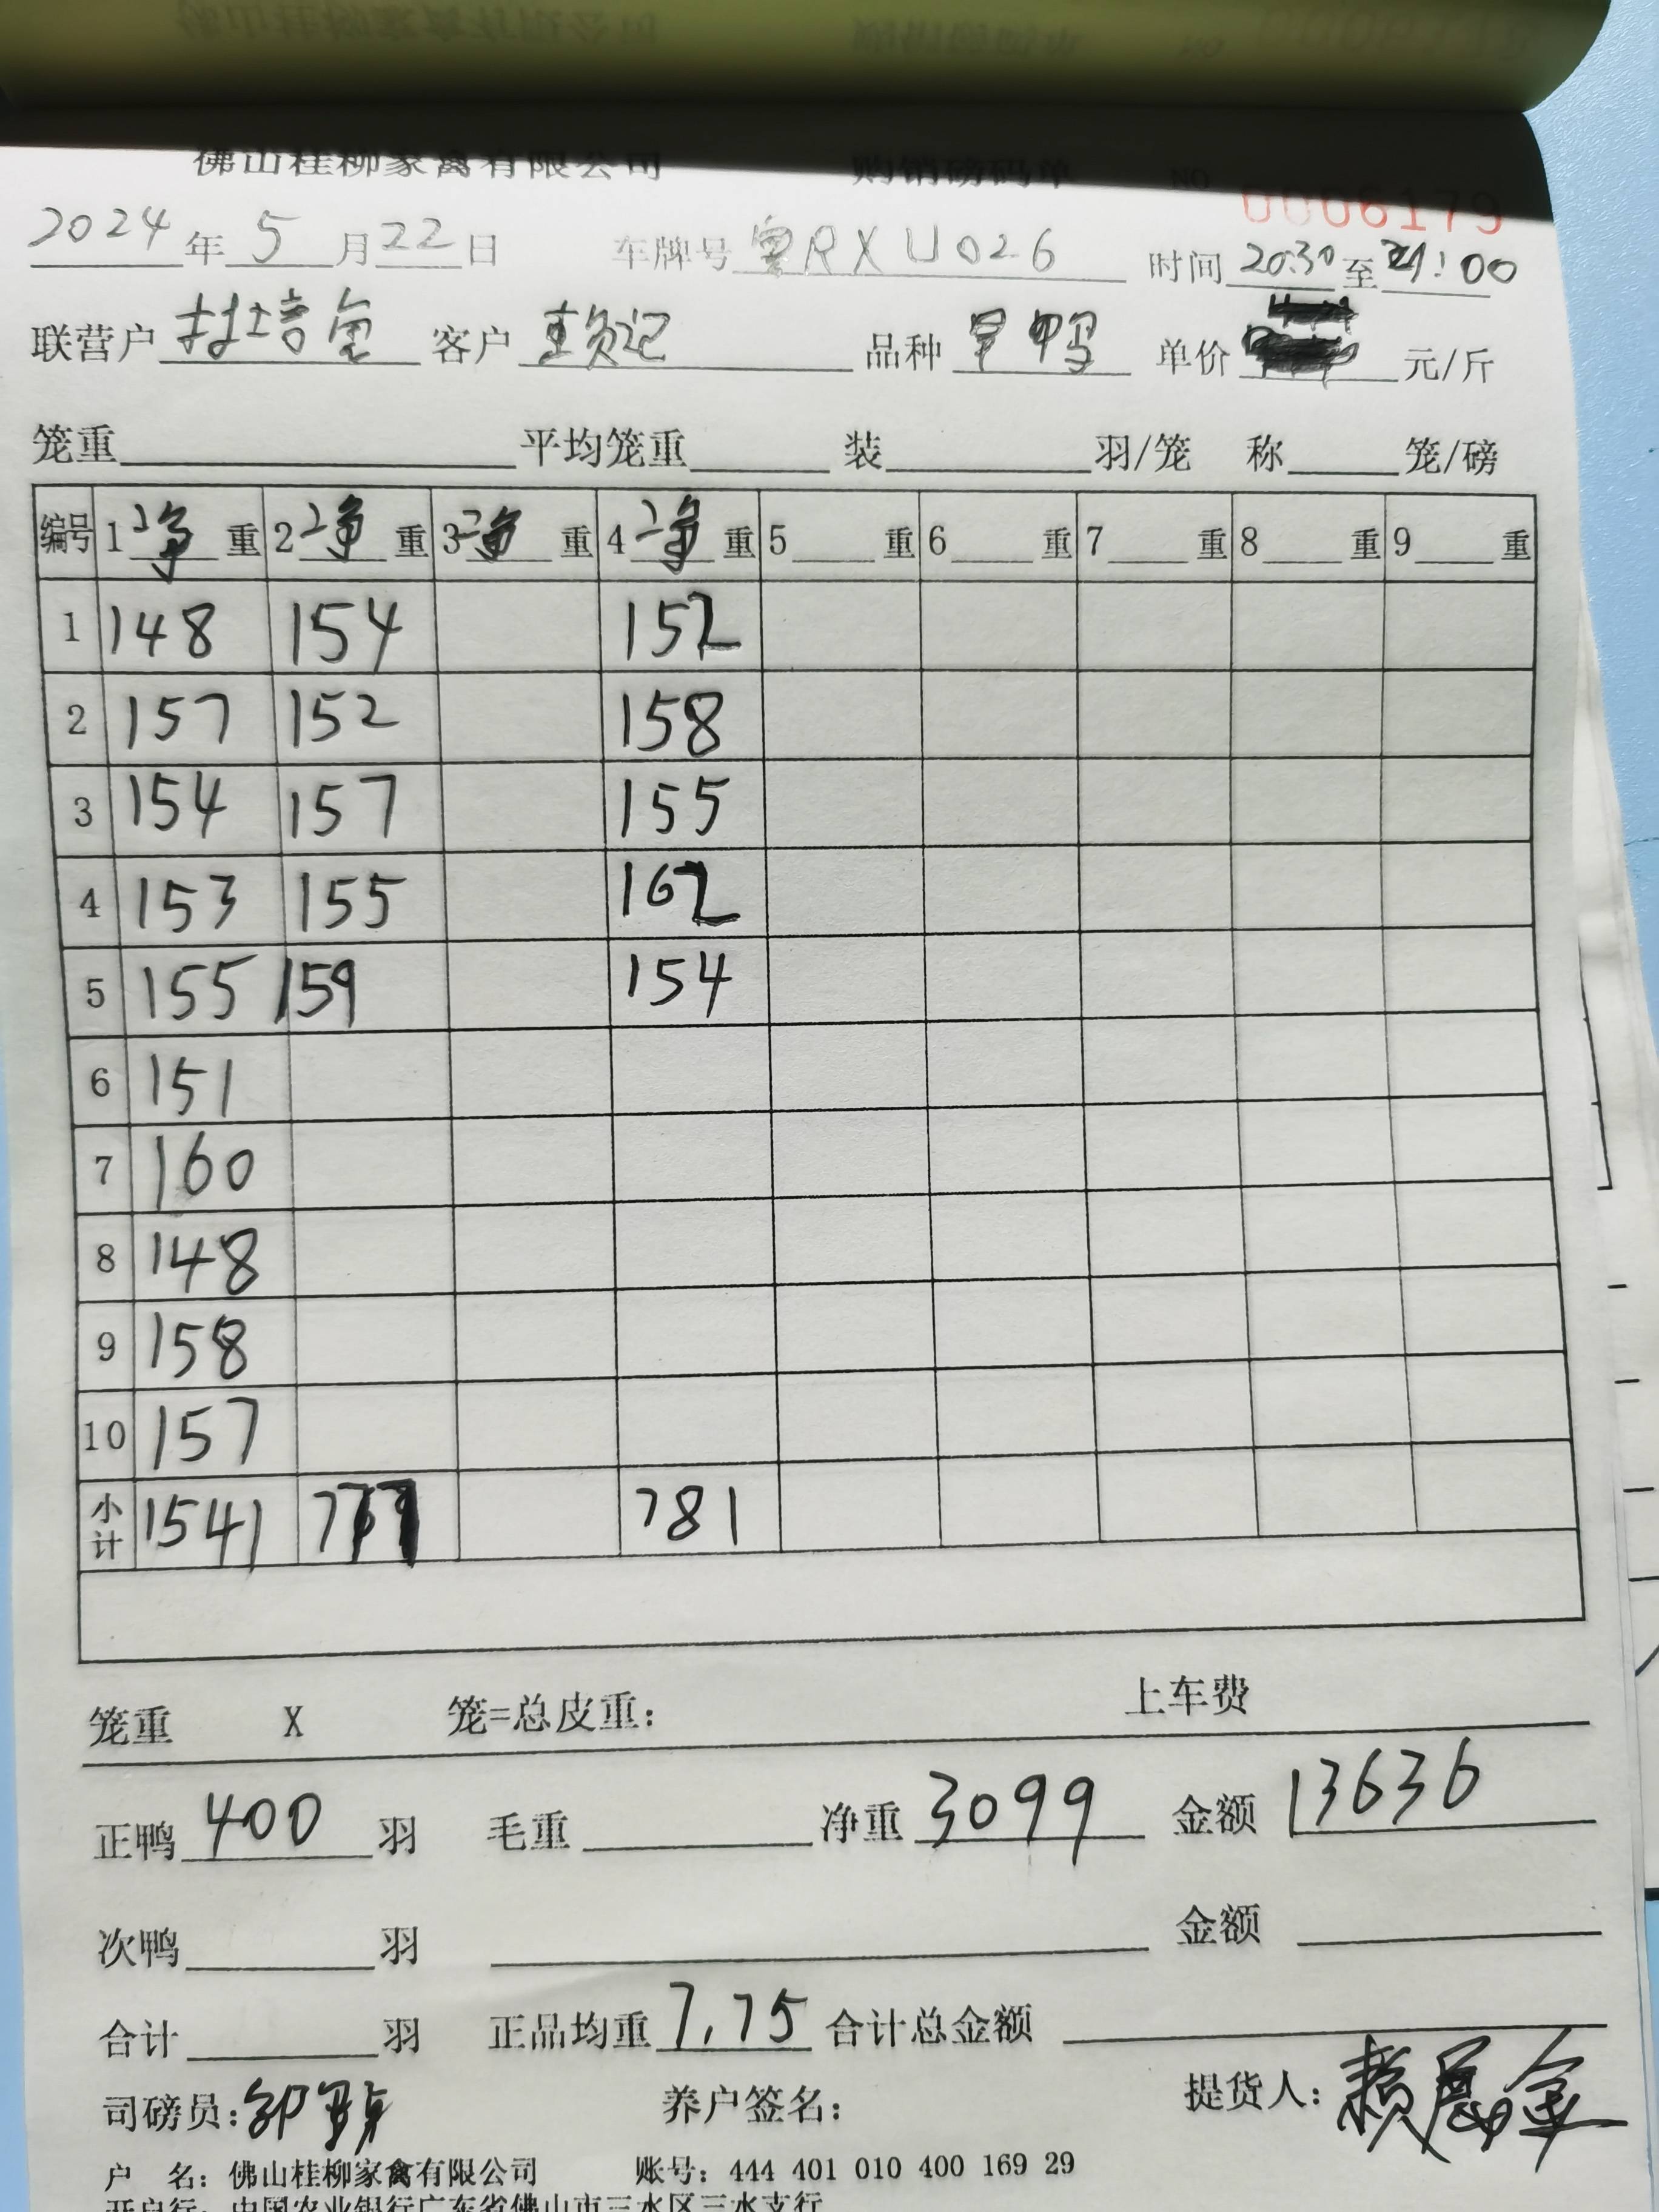 佛山桂柳家禽有限公司 购销磅码单 NO 0006179
2024年5月22日 车牌号 粤RXU026 时间 20:30 至 21:00
联营户 客户 赖记 品种 旱鸭 单价 元/斤
笼重 平均笼重 装 羽/笼 称 笼/磅
编号 1净重 2净重 3净重 4净重 5 重 6 重 7 重 8 重 9 重
1 148 154 152
2 157 152 158
3 154 157 155
4 153 155 162
5 155 159 154
6 151
7 160
8 148
9 158
10 157
小计 1541 777 781
笼重 X 笼=总皮重: 上车费
正鸭 400 羽 毛重 净重 3099 金额 13636
次鸭 羽 金额
合计 羽 正品均重 7.75 合计总金额
司磅员: 养户签名: 提货人:
户 名: 佛山桂柳家禽有限公司 账号: 444 401 010 400 169 29
开户行: 中国农业银行广东省佛山市三水区三水支行